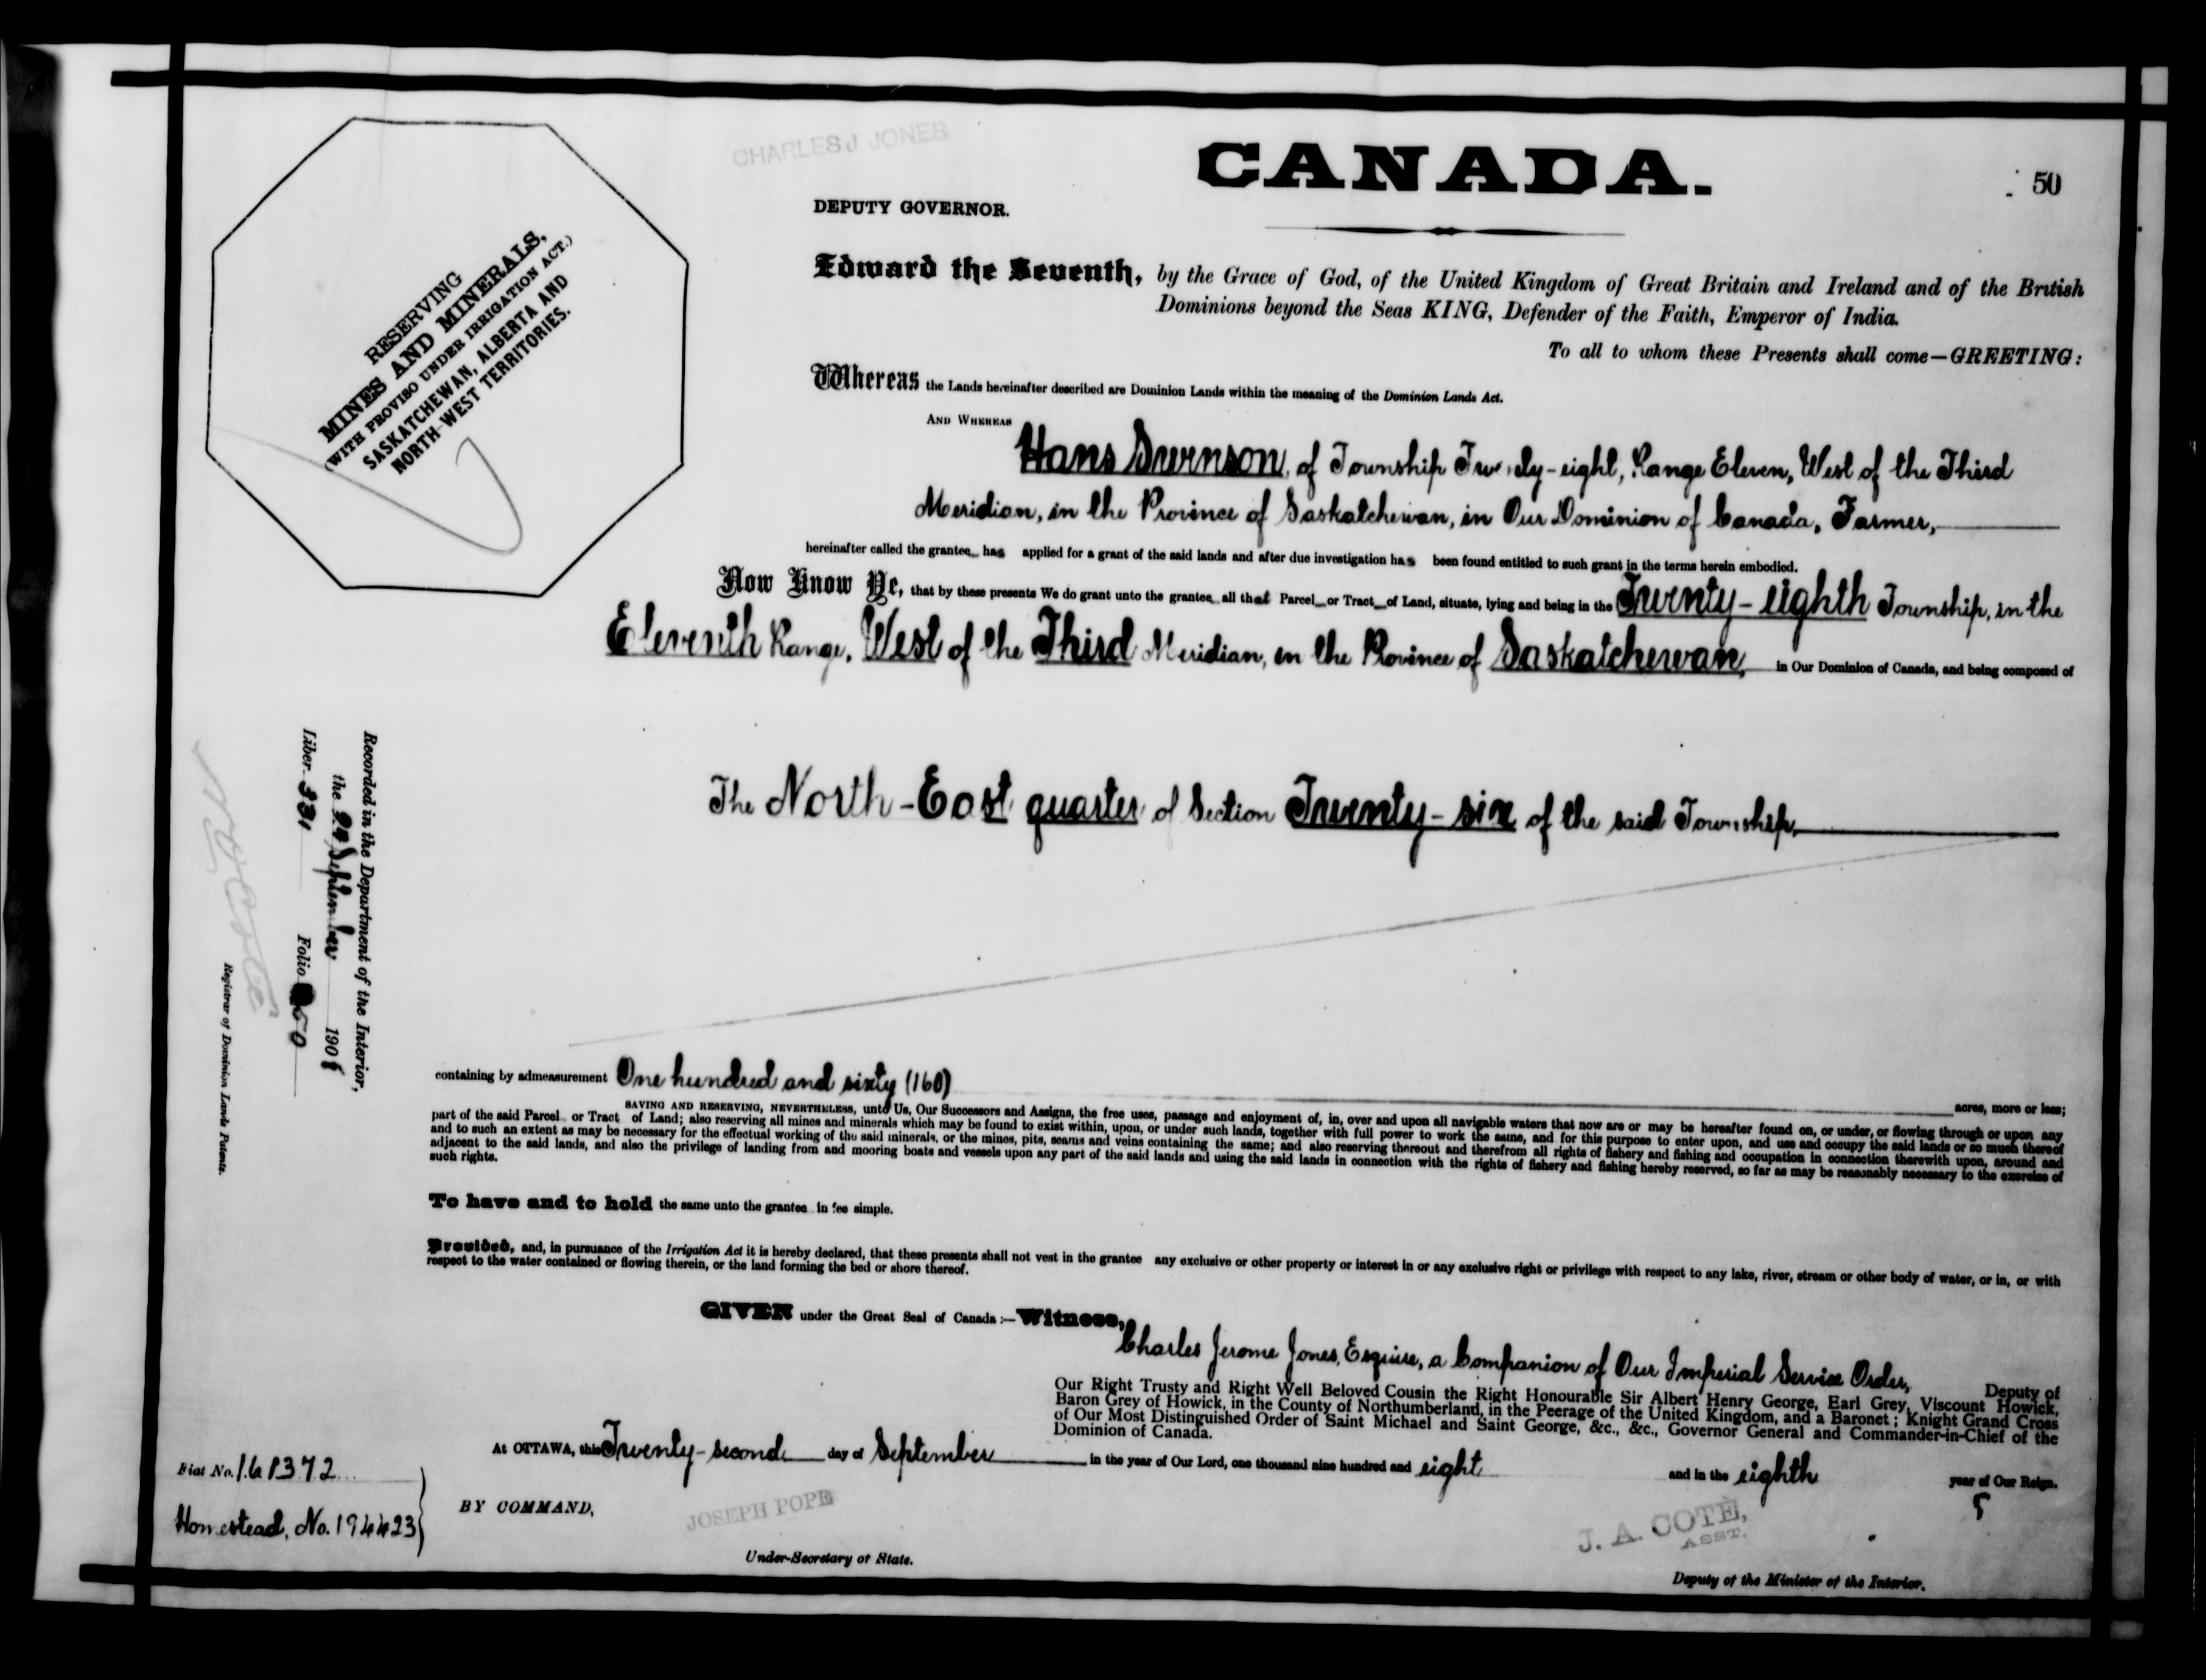 CHARLES J JONES
CANADA.
50
DEPUTY GOVERNOR.
RESERVING
MINES AND MINERALS,
(WITH PROVISO UNDER IRRIGATION ACT.)
SASKATCHEWAN, ALBERTA AND
NORTH-WEST TERRITORIES.
Edward the Seventh, by the Grace of God, of the United Kingdom of Great Britain and Ireland and of the British
Dominions beyond the Seas KING, Defender of the Faith, Emperor of India.
To all to whom these Presents shall come—GREETING:
Whereas the Lands hereinafter described are Dominion Lands within the meaning of the Dominion Lands Act.
AND WHEREAS
Hans Swenson, of Township Twenty-eight, Range Eleven, West of the Third
Meridian, in the Province of Saskatchewan, in Our Dominion of Canada, Farmer,
hereinafter called the grantee has applied for a grant of the said lands and after due investigation has been found entitled to such grant in the terms herein embodied.
Now Know Ye, that by these presents We do grant unto the grantee all that Parcel or Tract of Land, situate, lying and being in the Twenty-eighth Township, in the
Eleventh Range, West of the Third Meridian, in the Province of Saskatchewan, in Our Dominion of Canada, and being composed of
The North-East quarter of Section Twenty-six of the said Township,
Recorded in the Department of the Interior,
the September 1908
Liber 331 Folio 50
Registrar of Dominion Lands Patents.
containing by admeasurement One hundred and sixty (160) acres, more or less;
SAVING AND RESERVING, NEVERTHELESS, unto Us, Our Successors and Assigns, the free uses, passage and enjoyment of, in, over and upon all navigable waters that now are or may be hereafter found on, or under, or flowing through or upon any
part of the said Parcel or Tract of Land; also reserving all mines and minerals which may be found to exist within, upon, or under such lands, together with full power to work the same, and for this purpose to enter upon, and use and occupy the said lands or so much thereof
and to such an extent as may be necessary for the effectual working of the said minerals, or the mines, pits, seams and veins containing the same; and also reserving thereout and therefrom all rights of fishery and fishing and occupation in connection therewith upon, around and
adjacent to the said lands, and also the privilege of landing from and mooring boats and vessels upon any part of the said lands and using the said lands in connection with the rights of fishery and fishing hereby reserved, so far as may be reasonably necessary to the exercise of
such rights.
To have and to hold the same unto the grantee in fee simple.
Provided, and, in pursuance of the Irrigation Act it is hereby declared, that these presents shall not vest in the grantee any exclusive or other property or interest in or any exclusive right or privilege with respect to any lake, river, stream or other body of water, or in, or with
respect to the water contained or flowing therein, or the land forming the bed or shore thereof.
GIVEN under the Great Seal of Canada:—Witness,
Charles Jerome Jones, Esquire, a Companion of Our Imperial Service Order, Deputy of
Our Right Trusty and Right Well Beloved Cousin the Right Honourable Sir Albert Henry George, Earl Grey, Viscount Howick,
Baron Grey of Howick, in the County of Northumberland, in the Peerage of the United Kingdom, and a Baronet; Knight Grand Cross
of Our Most Distinguished Order of Saint Michael and Saint George, &c., &c., Governor General and Commander-in-Chief of the
Dominion of Canada.
At OTTAWA, this Twenty-second day of September in the year of Our Lord, one thousand nine hundred and eight and in the eighth year of Our Reign.
Fiat No. 161372
Homestead, No. 194423
BY COMMAND,
JOSEPH POPE
Under-Secretary of State.
J. A. COTÈ,
ASST.
Deputy of the Minister of the Interior.